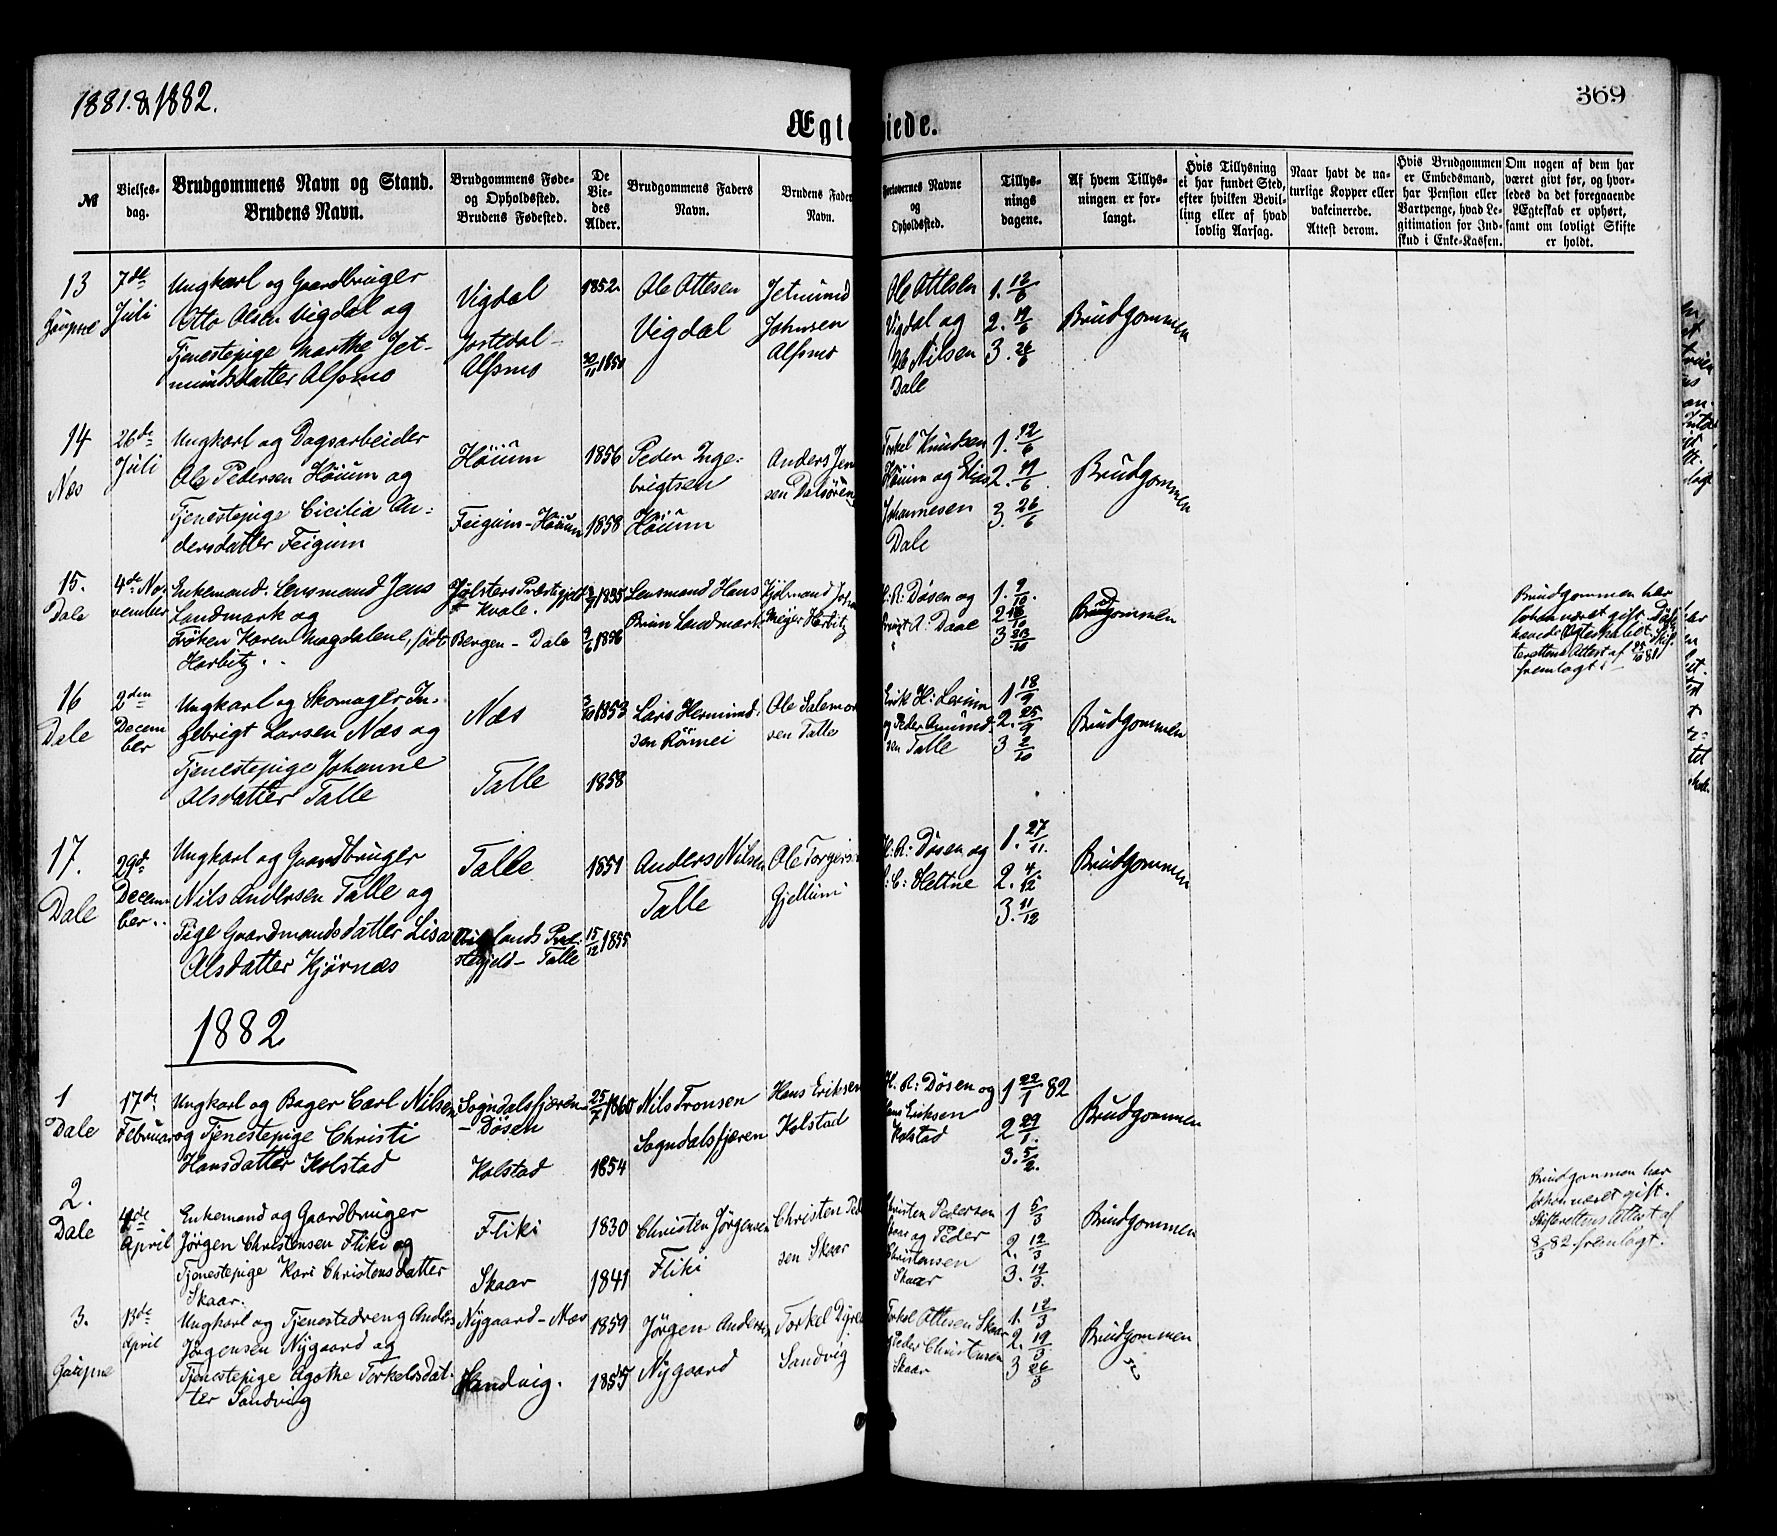 1881.&1882.
369
Ægteviede.
№
Vielses-
dag.
Brudgommens Navn og Stand.
Brudens Navn.
Brudgommens Føde-
og Opholdssted.
Brudens Fødested.
De
Vie-
des
Alder.
Brudgommens Faders
Navn.
Brudens Fader
Navn.
Forlovernes Navne
og
Opholdssted.
Tillys-
nings
dagene.
Af hvem Tillys-
ningen er for-
langt.
Hvis Tillysning
ei har fundet Sted,
efter hvilken Bevil-
ling eller af hvad
lovlig Aarsag.
Naar havt de na-
turlige Kopper eller
vakcinerede.
Attest derom.
Hvis Brudgommen
er Embedsmand,
har Pension eller
Vartpenge, hvad Le-
gitimation for Ind-
skud i Enke-Kassen.
Om nogen af dem har
været givt før, og hvor-
ledes da det foregaaende
Ægteskab er ophørt,
samt om lovligt Skifte
er holdt.
13
Gaupne
7de
Juli
Ungkarl og Gaardbruger
Otto Olsen Vigdal og
Tjenestepige Marthe Jet-
mundsdatter Alsmo
Vigdal
Jostedal-
Alsmo
1852
30/11 1850
Ole Ottesen
Vigdal
Jetmund
Johnsen
Alsmo
Ole Ottesen
Vigdal og
Ole Nilsen
Dale
1. 12/6
2. 19/6
3. 26/6
Brudgommen
14
Næs
26de
Juli
Ungkarl og Dagsarbeider
Ole Pedersen Høium og
Tjenestepige Cicilia An-
dersdatter Feigum
Høium
Feigum-Høium
1856
1858
Peder Inge-
brigtsen
Høium
Anders Jen
sen Dalsøren
Torkel Knudsen
Høium og Elias
Johannesen
Dale
1. 12/6
2. 19/6
3. 26/6
Brudgommen
15.
Dale
4de No-
vember
Enkemand. Lensmand Jens
Landmark og
Frøken Karen Magdalene
Harbitz
Jølsters Præstegjeld
Kvale.
Bergen - Dale
1835
1856
Lensmand Hans
Brun Landmark
Meyer Harbitz
H. R. Døsen og
A. Daae
1. 9/10.
2 16/10
3 23/10
Brudgommen
Brudgommen har
forhen været gift.
Ægteskabet. Skif-
terettens Attest af
fremlagt.
16
Dale
2den
Decem
ber
Ungkarl og Skomager In-
gebrigt Larsen Næs og
Tjenestepige Johanne
Olsdatter Talle
Næs
Talle
3/10 1853
1858
Lars Hermund-
sen Rømei
Ole Salemon
sen Talle
Erik H. Lerum
og Peder Amund-
sen Talle
1 18/9
2. 25/9
3 2/10
Brudgommen
17.
Dale
29de
Decem
ber..
Ungkarl og Gaardbruger
Nils Andersen Talle og
Pige Gaardmandsdatter Lisa
Olsdatter Kjørnæs
Talle
Præ-
stegjeld - Talle
1851
15/12 1855
Anders Nilsen
Talle
Ole Torgers
Gjellum
H. R. Døsen og
C. Hettne
1. 27/11.
2. 4/12
3. 11/12
Brudgommen
1882
1
Dale
17de
Februar
Ungkarl og Bager Carl Nilsen
og Tjenestepige Christi
Hansdatter Kolstad
Sogndalsfjæren
- Døsen
Kolstad
25/7 1860
1854
Nils Tronsen
Sogndalsfjæren
Hans Eriksen
Kolstad
H. R. Døsen og
Hans Eriksen
Kolstad
1 22/1 82
2 29/1.
3. 5/2.
Brudgommen
2.
Dale
4de
April
Enkemand og Gaardbruger
Jørgen Christensen Fliki og
Tjenestepige Kari Christensdatter
Skaar.
Fliki
Skaar
1830
1841
Christen Jørgensen
Fliki
Christen Peder
sen Skaar
Christen Pedersen
Skaar og Peder
Christensen
Skaar
1 5/3
2. 12/3
3. 19/3.
Brudgommen
Brudgommen har
forhen været gift.
Skifterettens Attest af
8/3 82 fremlagt.
3.
Gaupne
13de
April
Ungkarl og Tjenestedreng Anders
Jørgensen Nygaard og
Tjenestepige Agathe Torkelsdat-
ter Sandvig
Nygaard - Næs
Sandvig.
1859
1855
Jørgen Andersen
Nygaard
Torkel
Sandvig
Torkel Ottesen Skaar
Peder Christensen
Skaar
1. 12/3
2. 19/3
3 26/3
Brudgommen